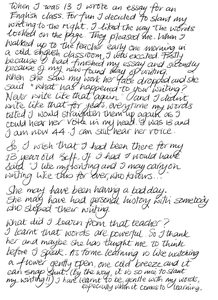 When I was 13 I wrote an essay for an
English class. For fun I decided to slant my
writing to the right. I liked the way the words
looked on the page. They pleased me. When I
walked up to the teacher early one morning in
a cold english classroom I was excited. Partly
because I had finished my essay and partly
because of my new found way of writing.
When she saw my work her face dropped and she
said "What has happened to your writing?
Never write like that again." And I didn't
write like that for years. Everytime my words
tilted I would straighten them up again as I
could hear her voice in my head. I was 13 and
I am now 44. I can still hear her voice
So, I wish that I had been there for my
13 year old self. If I had I would have
said "I like my slanting and I may carry on
writing like this for ever, who knows."
She may have been having a bad day.
She may have had personal history with somebody
who sloped their writing.
What did I learn from that teacher?
I learnt that words are powerful. So I thank
her and maybe she has taught me to think
before I speak. It's some learning is like watching
a flower gently open, one cold breeze and it
can snap shut. (By the way, it is so me to slant
my writing!!) I have learnt to be gentle with my words,
especially when it comes to learning.